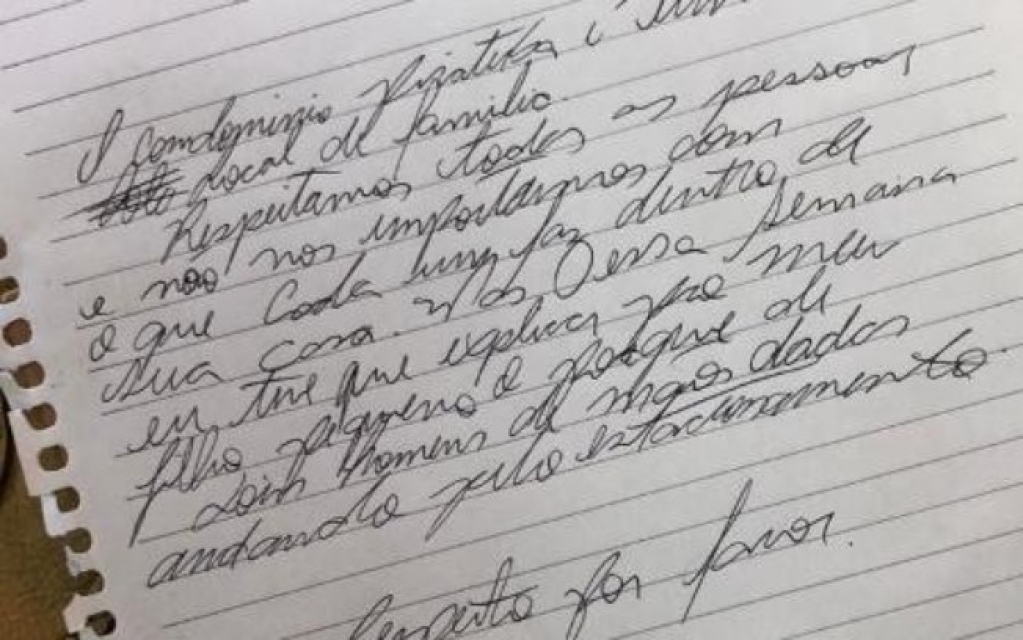 O condominio Piratiba é um
local de familia.
Respeitamos todas as pessoas
e não nos importamos com
o que cada um faz dentro de
sua casa. Mas essa semana
eu tive que explicar pro meu
filho pequeno o porque de
dois homens de mãos dadas
andando pelo estacionamento.
Respeito por favor.